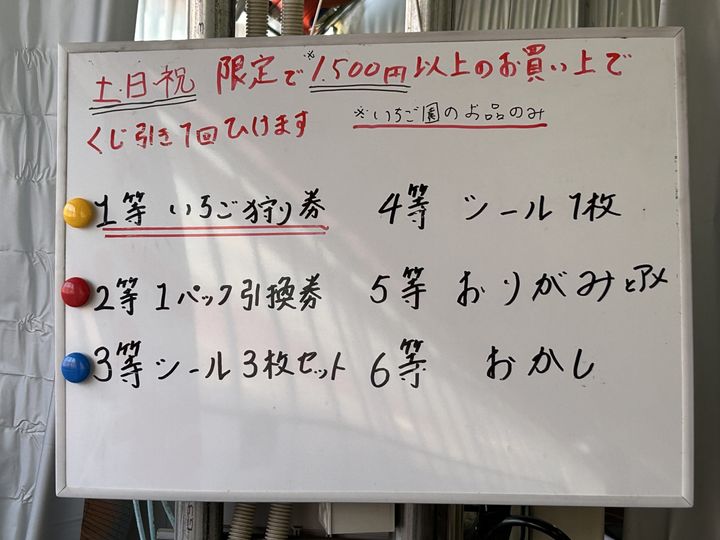 土・日・祝 限定で※1,500円以上のお買い上で
くじ引き1回ひけます ※いちご園のお品のみ
1等 いちご狩り券
2等 1パック引換券
3等 シール3枚セット
4等 シール1枚
5等 おりがみとアメ
6等 おかし